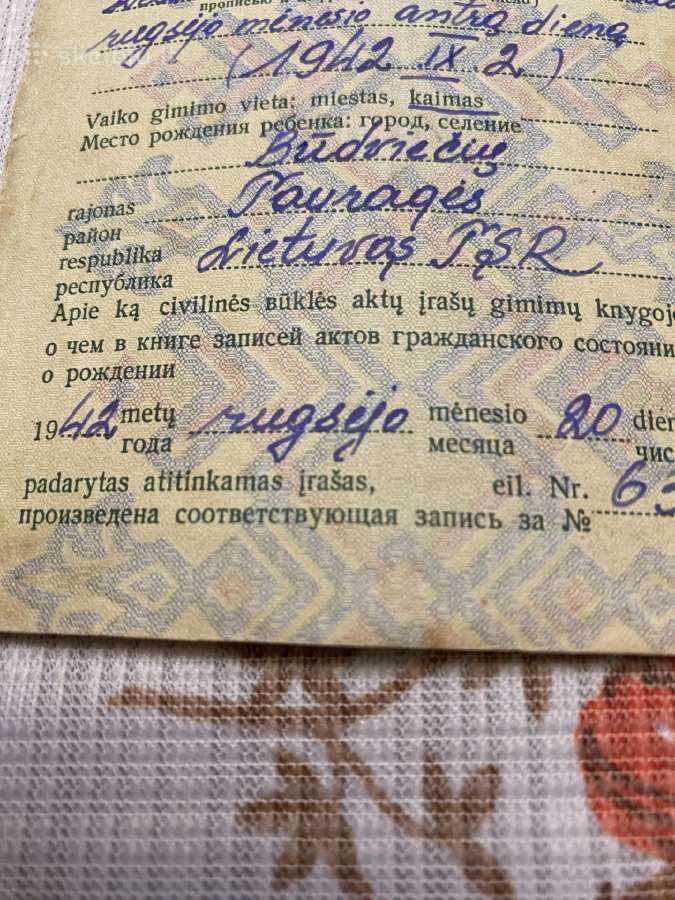 прописью
rugsėjo mėnesio antrą dieną
(1942 IX. 2.)
Vaiko gimimo vieta: miestas, kaimas
Место рождения ребенка: город, селение
Būdviečių
rajonas Tauragės
район
respublika Lietuvos TSR
республика
Apie ką civilinės būklės aktų įrašų gimimų knygoj
о чем в книге записей актов гражданского состояни
о рождении
1942 metų rugsėjo mėnesio 20 dien
года месяца чис
padarytas atitinkamas įrašas, eil. Nr. 63
произведена соответствующая запись за №